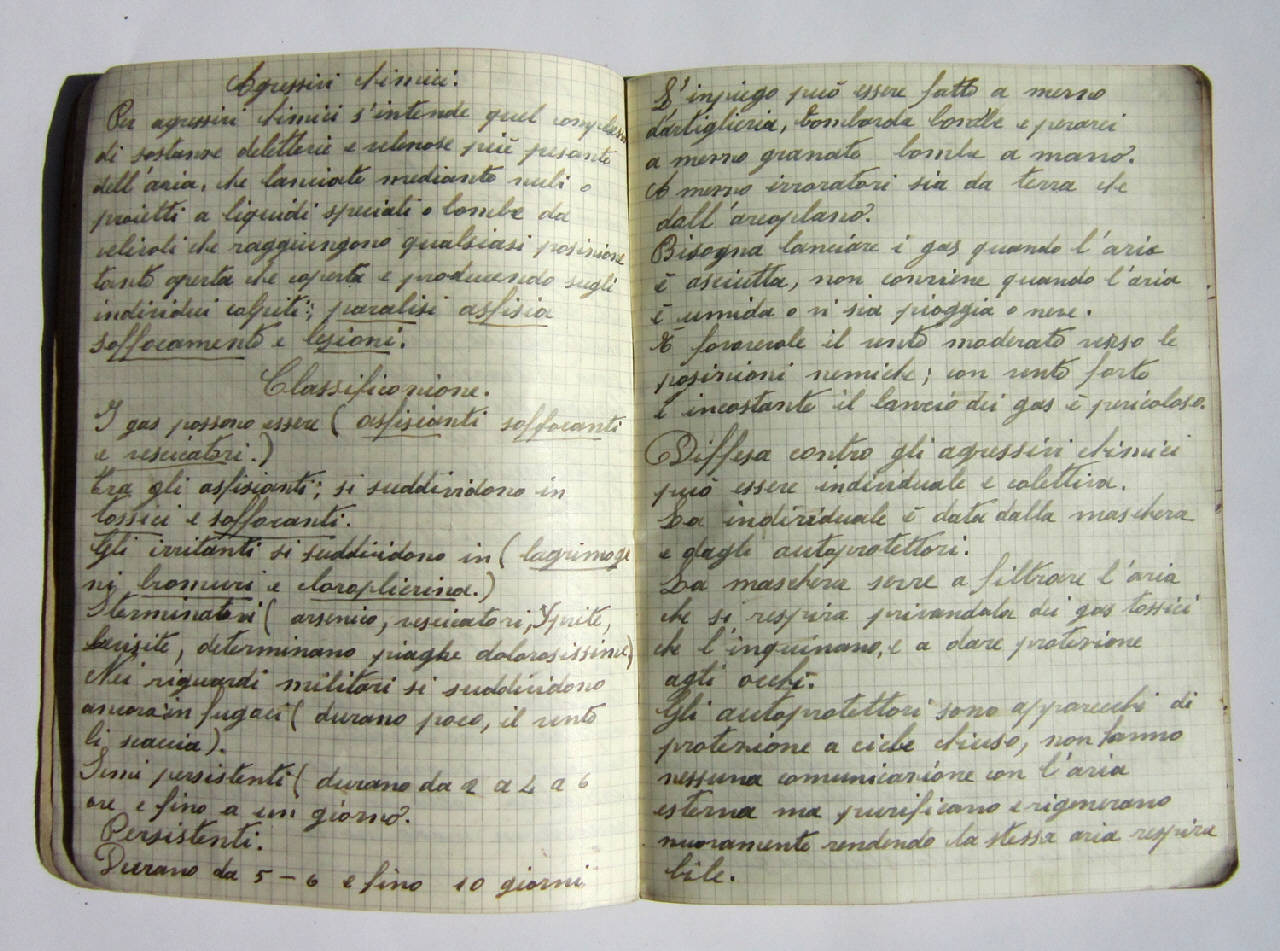 Agressivi chimici:
Per agressivi chimici s'intende quel complesso
di sostanze deletterie e velenose più pesante
dell'aria, che lanciate mediante nubi o
proietti a liquidi speciali o bombe da
velivoli che raggiungono qualsiasi posizione
tanto aperta che coperta e producendo sugli
individui colpiti; paralisi asfisia
soffocamento e lesioni.
Classificazione.
I gas possono essere ( asfisianti soffocanti
e vescicatori.)
Tra gli asfisianti; si suddividono in
tossici e soffocanti.
Gli irritanti si suddividono in ( lagrimoge
ni bromuri e cloropicrina.)
Sterminatori ( arsenico, vescicatori, Yprite,
lewisite, determinano piaghe dolorosissime)
Nei riguardi militari si suddividono
ancora in fugaci ( durano poco, il vento
li scaccia).
Semi persistenti ( durano da 2 a 4 a 6
ore e fino a un giorno.
Persistenti.
Durano da 5-6 e fino 10 giorni.
L'inpiego può essere fatto a mezzo
d'artiglieria, bombarda bombe e perarei
a mezzo granate bombe a mano.
A mezzo irroratori sia da terra che
dall'areoplano.
Bisogna lanciare i gas quando l'aria
è asciutta, non conviene quando l'aria
è umida o vi sia pioggia o neve.
È favorevole il vento moderato verso le
posizioni nemiche; con vento forte
e incostante il lancio dei gas è pericoloso.
Diffesa contro gli agressivi chimici
può essere individuale e colettiva.
La individuale è data dalla maschera
e dagli autoprotettori.
La maschera serve a filtrare l'aria
che si respira privandola dei gas tossici
che l'inquinano, e a dare protezione
agli occhi.
Gli autoprotettori sono apparecchi di
protezione a ciclo chiuso, non hanno
nessuna comunicazione con l'aria
esterna ma purificano e rigenerano
nuovamente rendendo la stessa aria respira
bile.